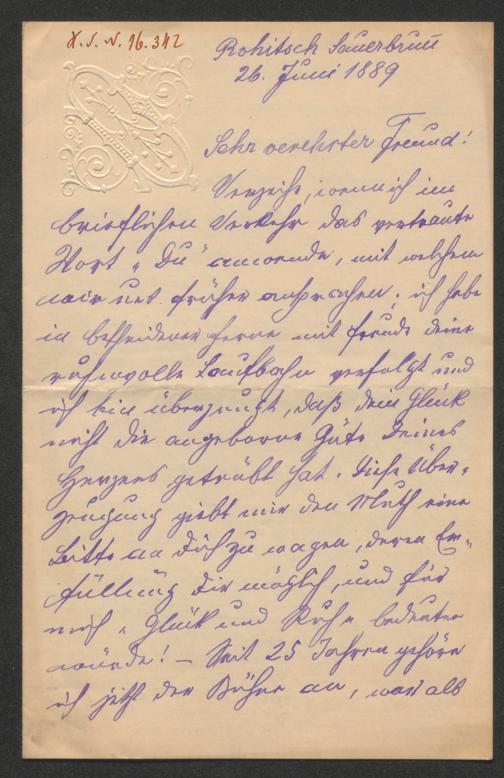 H. I. N. 96.312
Rohitsch Sauerbrunn
26. Juni 1889
Sehr verehrter Freund!
Verzeihe, wenn ich im
brieflichen Verkehr das vertraute
Wort „Du“ anwende, mit welchem
wir uns früher ansprachen. ich habe
in bescheidener Ferne mit Freude deine
ruhmvolle Laufbahn verfolgt und
ich bin überzeugt, daß dein Glück
nicht die angeborne Güte Deines
Herzens getrübt hat. Diese Über-
zeugung giebt mir den Muth eine
Bitte an Dich zu wagen, deren Er-
füllung Dir möglich, und für
mich „Glück und Ruhe“ bedeuten
würde! – Seit 25 Jahren gehöre
ich jetzt der Bühne an, war als